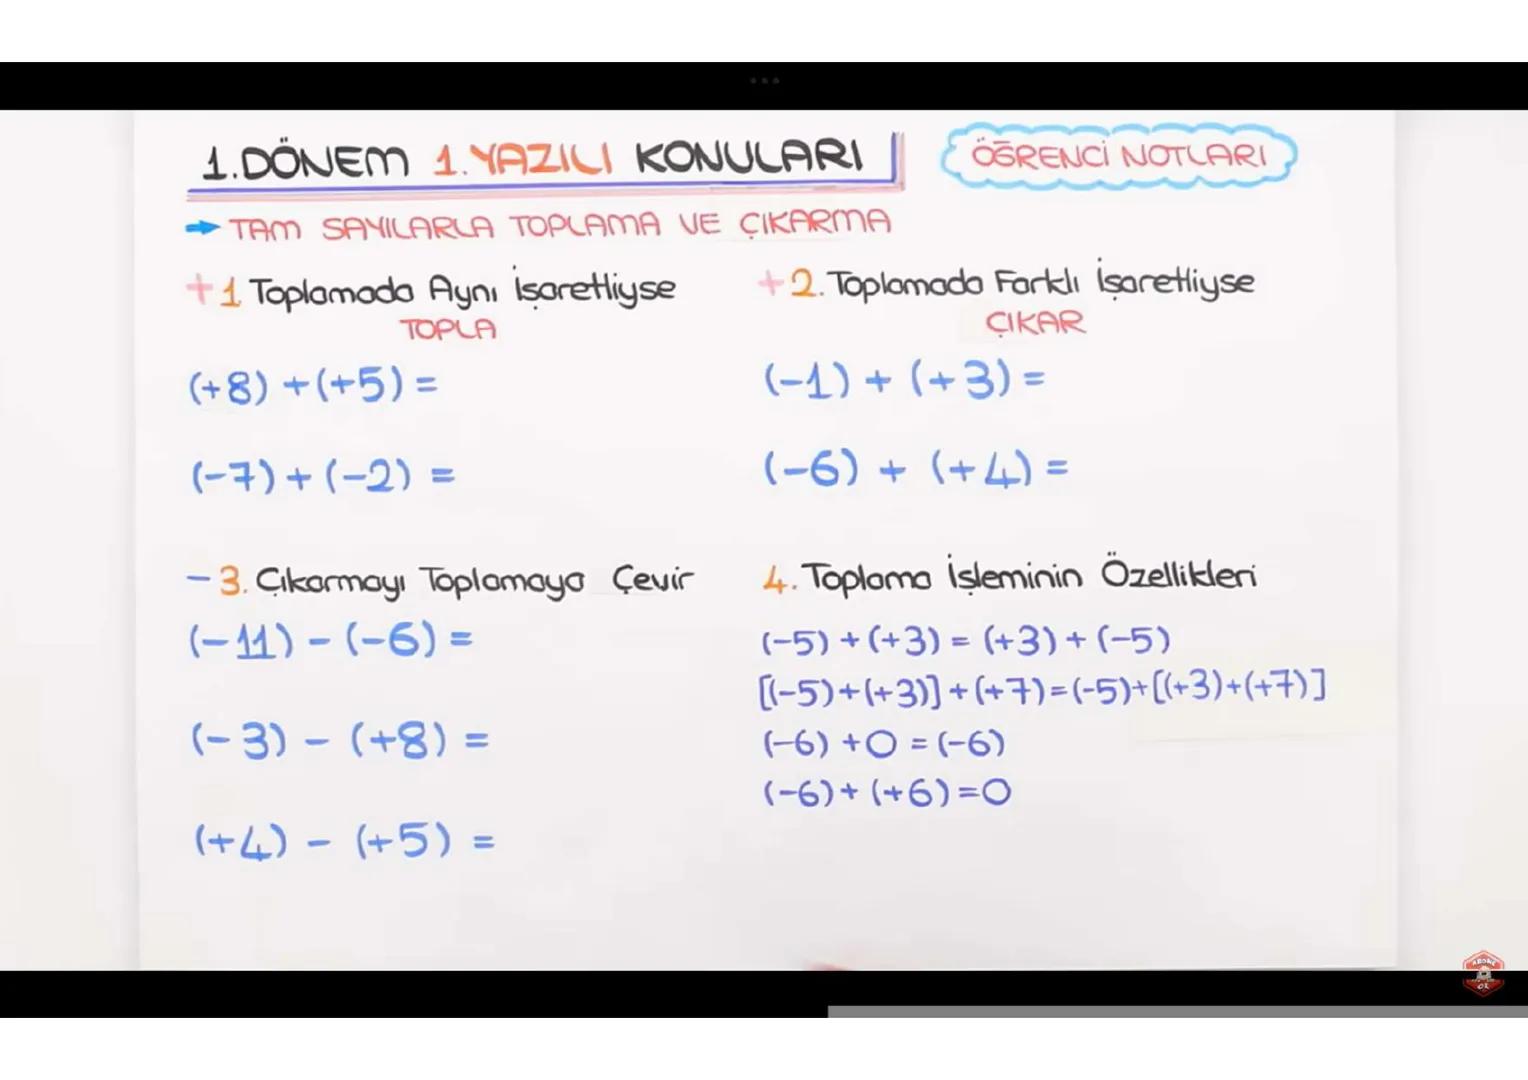 1.DÖNEM 1.YAZILI KONULARI
ÖĞRENCİ NOTLARI
→ TAM SAYILARLA TOPLAMA VE ÇIKARMA
+1 Toplamada Aynı İşaretliyse
TOPLA
(+8) +(+5) =
(-7)+(-2) =
+2. Toplamada Farklı İşaretliyse
ÇIKAR
(-1) + (+3) =
(-6) + (+4) =
-3. Çıkarmayı Toplamaya Çevir
(-11) - (-6) =
(-3) - (+8) =
(+4) - (+5) =
4. Toplama İşleminin Özellikleri
(-5) + (+3) = (+3) + (-5)
[(-5)+(+3)] + (+7) = (-5)+[(+3)+(+7)]
(-6) +0 = (-6)
(-6)+ (+6) =0
ABONE
OL